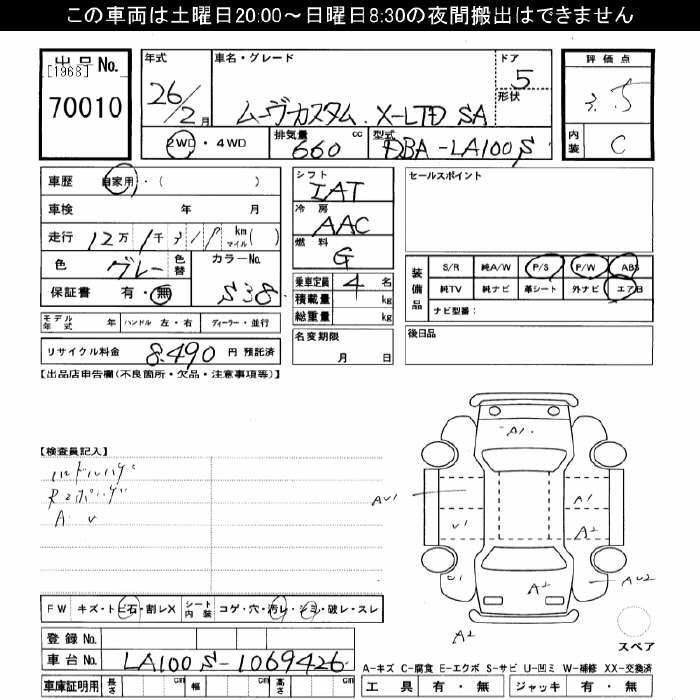 この車両は土曜日20:00～日曜日8:30の夜間搬出はできません
出品No.
[1968]
70010
年式
26/2月
車名・グレード
ムーヴカスタム X-LTD SA
ドア
5
形状
評価点
3.5
内装
C
2WD・4WD
排気量 cc
660
型式
DBA-LA100S
車歴 自家用・( )
車検 年 月
走行 12万 1千 km マイル( )
色 グレー 色替
カラーNo.
S38
保証書 有・無
シフト
IAT
冷房
AAC
燃料
G
乗車定員 4 名
積載量 kg
総重量 kg
セールスポイント
装備品
S/R 純A/W P/S P/W ABS
純TV 純ナビ 革シート 外ナビ エアB
ナビ型番:
モデル年式 年 ハンドル 左・右 ディーラー・並行
名変期限
月 日
後日品
リサイクル料金 8,490 円 預託済
【出品店申告欄(不良箇所・欠品・注意事項等)】
【検査員記入】
ハンドルハゲ
A U
A1
AU1
A1
U1
A2
U1
A2
AU2
A2
スペア
FW キズ・トビ石・割レX シート内装 コゲ・穴・汚レ・シミ・破レ・スレ
登録No.
車台No. LA100S-1069426
車庫証明用 長さ cm 幅 cm 高さ cm
A-キズ C-腐食 E-エクボ S-サビ U-凹ミ W-補修 XX-交換済
工具 有・無 ジャッキ 有・無